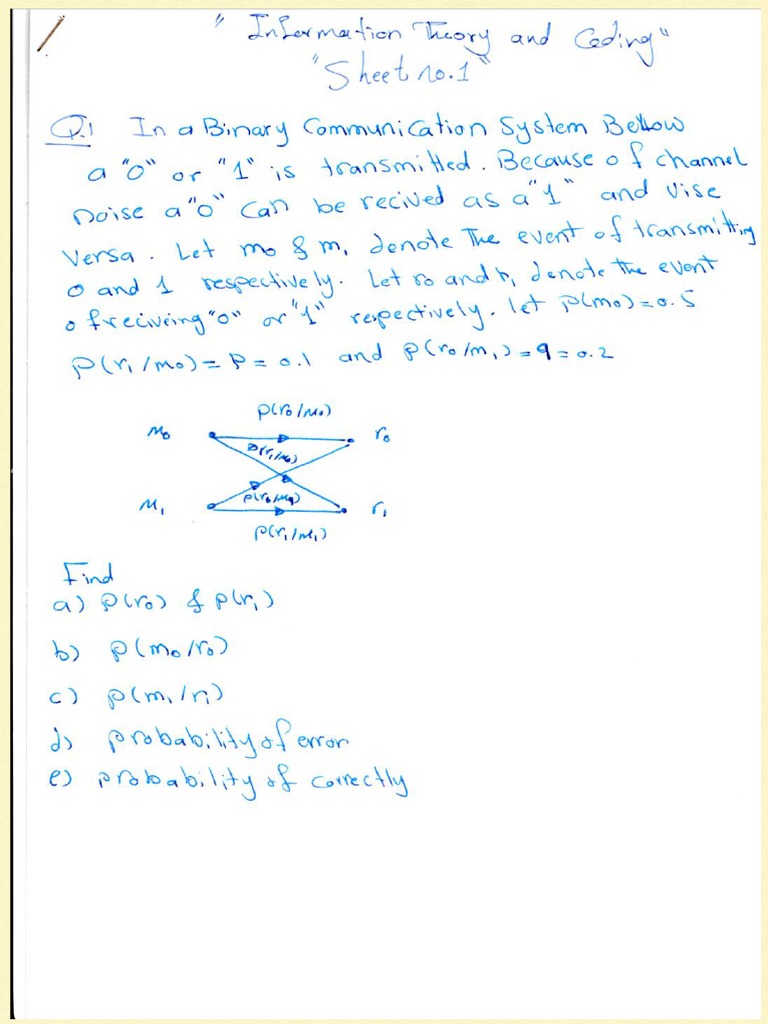 " Information Theory and Coding"
"Sheet no.1"
Q.1 In a Binary Communication System Bellow
a "0" or "1" is transmitted. Because of channel
noise a "0" can be recived as a "1" and vise
versa. Let m0 & m1 denote The event of transmitting
0 and 1 respectively. Let r0 and r1 denote the event
of reciving "0" or "1" repectively. let P(m0)=0.5
P(r1/m0)=P=0.1 and P(r0/m1)=q=0.2
P(r0/m0)
m0 r0
P(r1/m0)
P(r0/m1)
m1 r1
P(r1/m1)
Find
a) P(r0) & P(r1)
b) P(m0/r0)
c) P(m1/r1)
d) probability of error
e) probability of correctly